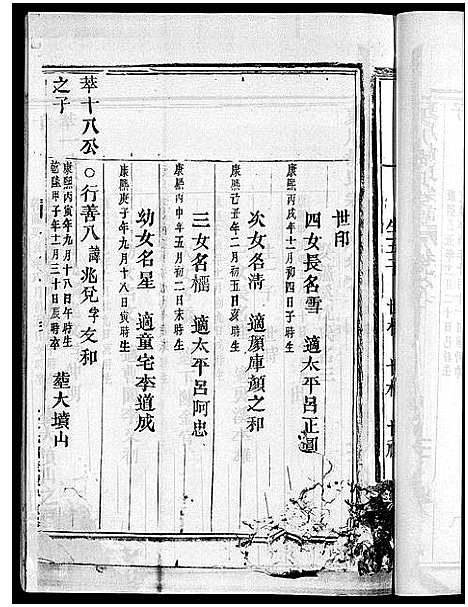 世印
四女長名雪　適太平呂正圓
康熙丙戌年十二月初四日子時生
次女名清　適顏庫顏之和
康熙己丑年二月初三日亥時生
三女名 適太平呂阿忠
康熙丙申年五月初二日未時生
幼女名星　適童宅李道成
康熙庚子年九月十八日寅時生
萃十八公○行善八諱兆兌字友和
之子
康熙丙寅年九月十八日午時生
乾隆甲子年十一月三十日辰時卒
葬大墳山